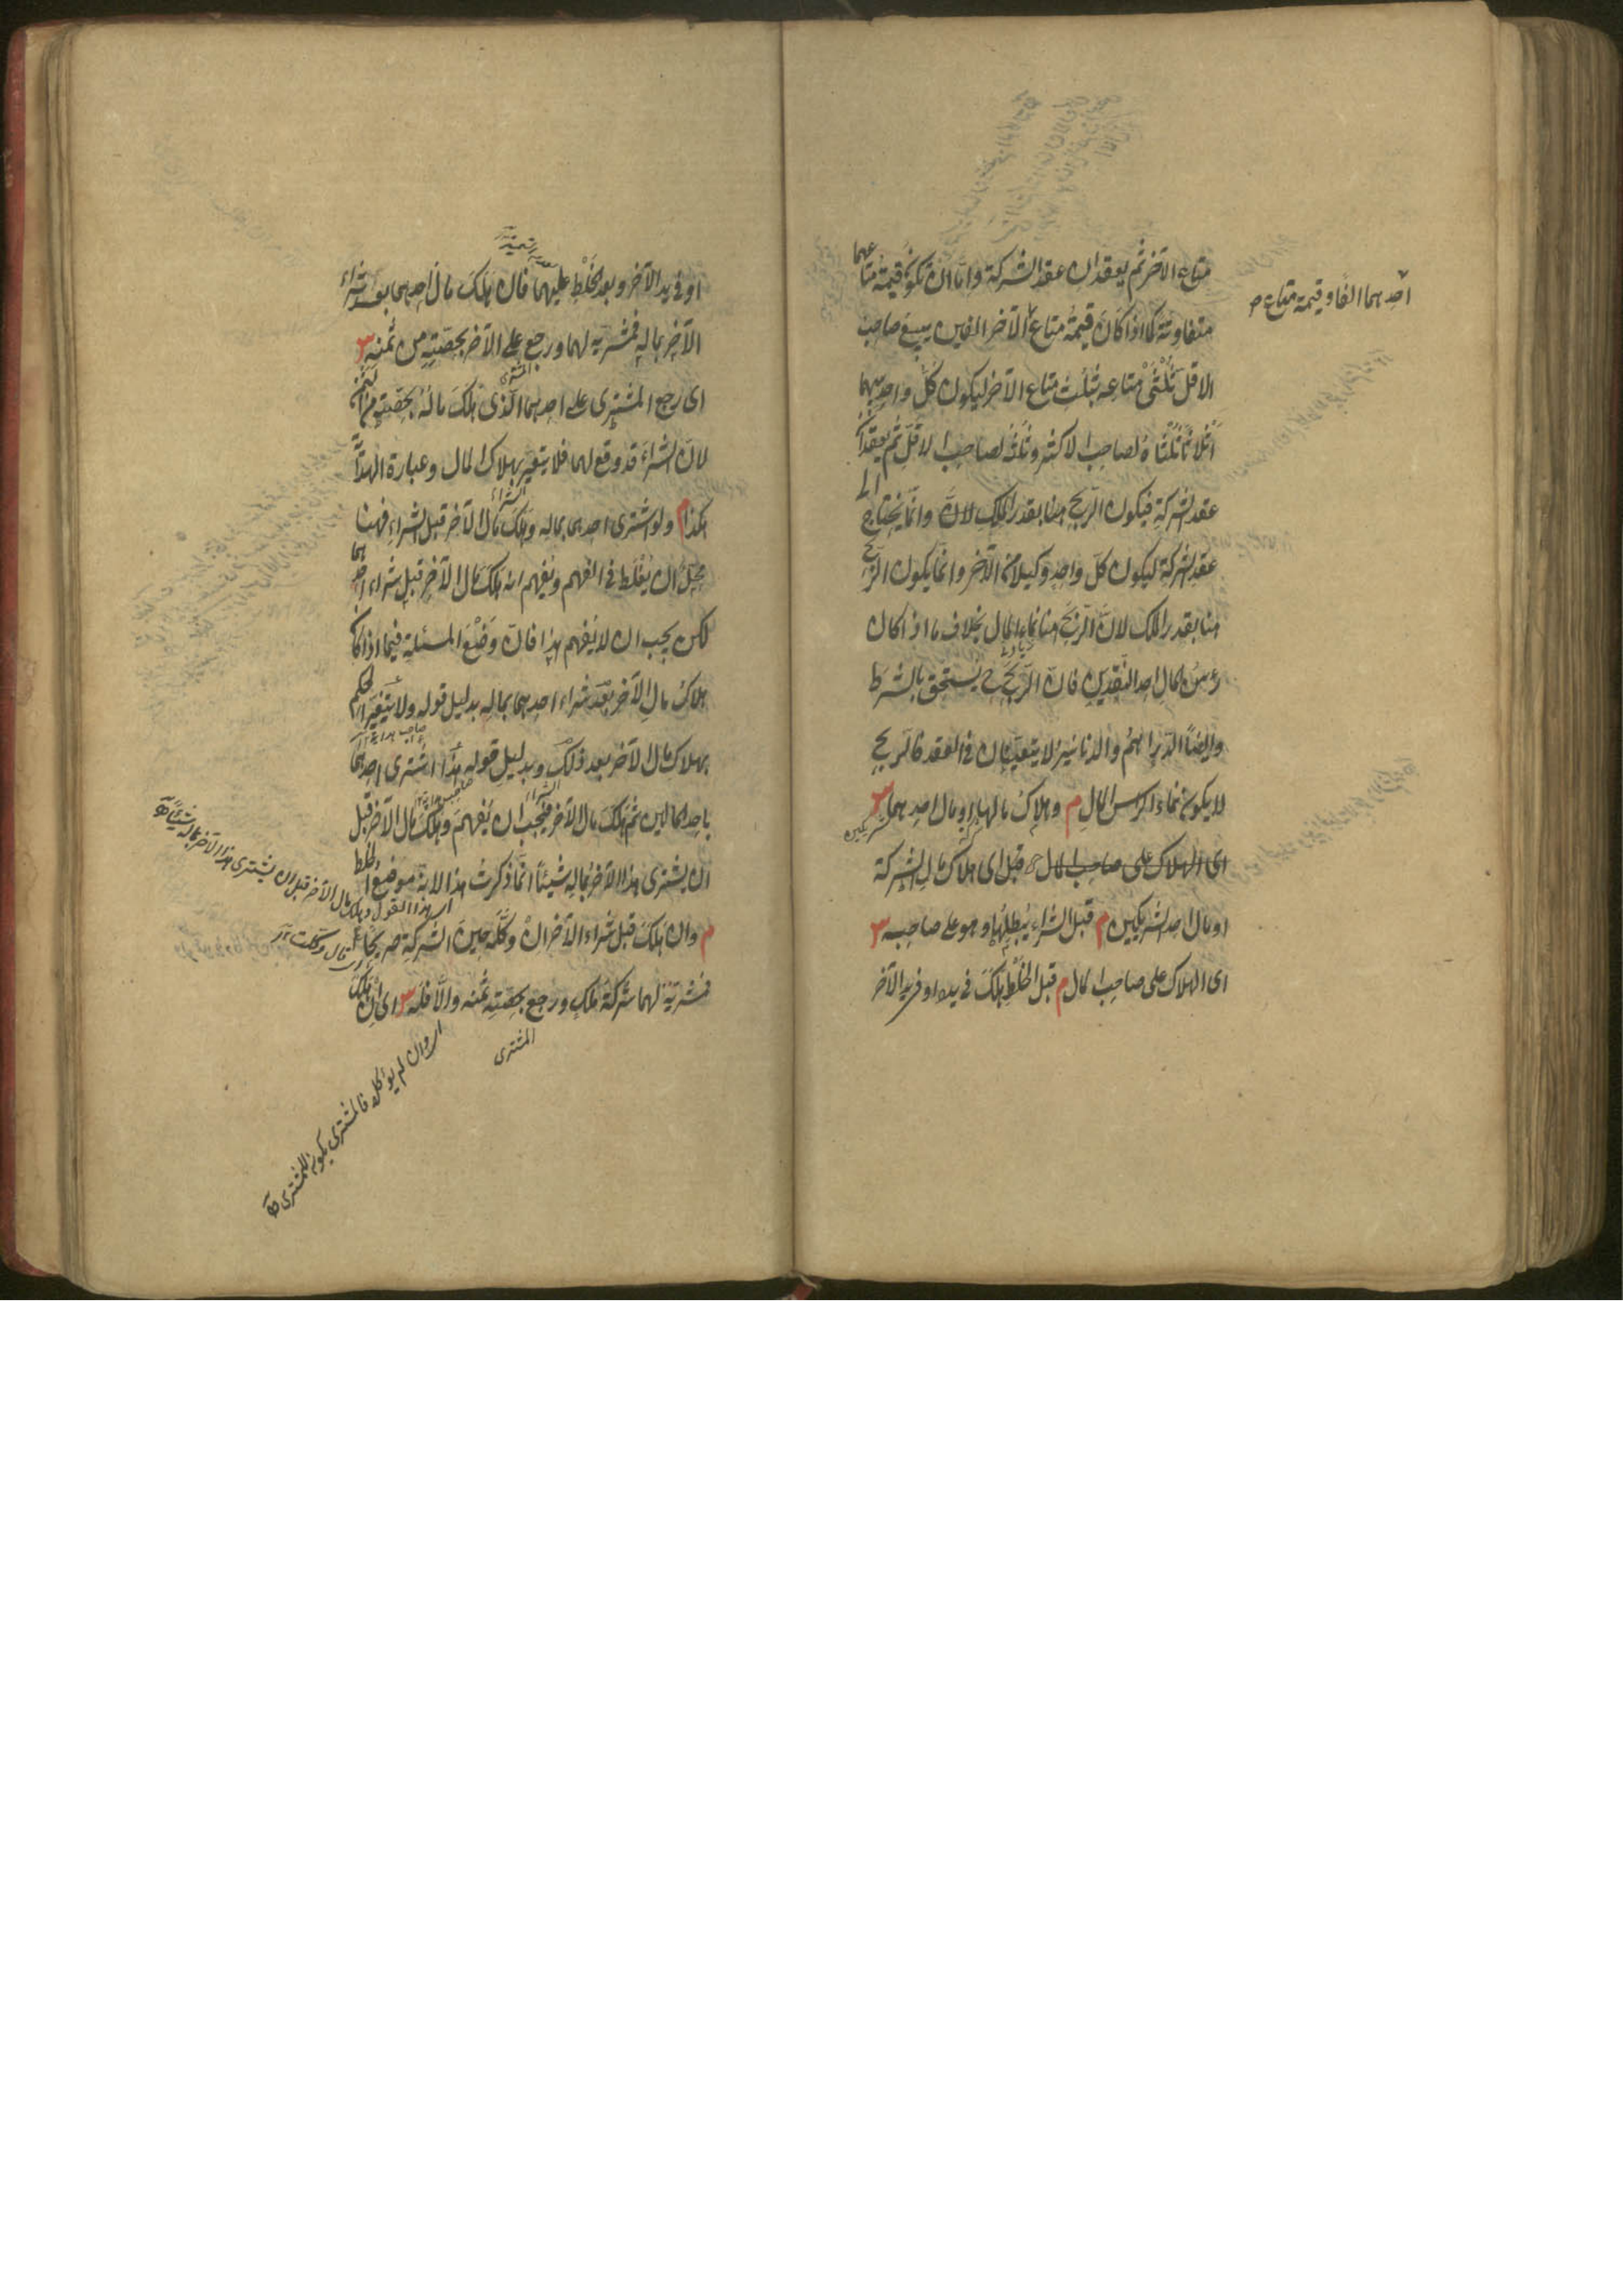 متاع الآخر ثم يعقدان عقد الشركة واما ان تكون قيمة متاعهما
متفاوتة كما اذا كان قيمة متاع الآخر الفين يبيع صاحب
احدهما الفا وقيمة متاع صح
الاقل ثلثى متاعه بثلث متاع الآخر ليكون كل واحد بينهما
اثلاثا ثلثاه لصاحب الاكثر وثلثه لصاحب الاقل ثم يعقدان
عقد الشركة فيكون الربح هنا بقدر الملك لان وانما يحتاج الى
عقد الشركة ليكون كل واحد وكيلا من الآخر وانما يكون الربح
هنا بقدر الملك لان الربح هنا نماء المال بخلاف ما اذا كان
رؤس المال احد النقدين فان الربح ح يستحق بالشرط
وايضا الدراهم والدنانير لا يتعينان فى العقد فالربح
لا يكون نماء الراس المال م وهلاك مالهما او مال احدهما س
اى الهلاك على صاحب المال قبل اى هلاك مال الشركة
او مال احد الشريكين م قبل الشراء يبطلها وهو على صاحبه س
اى الهلاك على صاحب المال م قبل الخلط هلك فى يده او فى يد الآخر
او فى يد الآخر وبعد الخلط عليهما فان هلك مال احدهما بعد شراء
الآخر بماله فمشريه لهما ورجع على الآخر بحصته من ثمنه س
اى رجع المشترى على احدهما الذى هلك ماله بحصته من الثمن
لان الشراء قد وقع لهما فلا يتغير بهلاك المال وعبارة الهداية
هكذا م ولو اشترى احدهما بماله وهلك مال الآخر قبل الشراء فهنا
محل ان يغلط فى الفهم ويفهم انه هلك مال الآخر قبل شراء احدهما
لكن يجب ان لا يفهم هذا فان وضع المسئلة فيما اذا كان
هلاك مال الآخر بعد شراء احدهما بماله بدليل قوله ولا يتغير الحكم
بهلاك مال الآخر بعد ذلك وبدليل قوله هذا اشترى احدهما
باحد المالين ثم هلك مال الآخر فيجب ان يفهم وهلك مال الآخر قبل
ان يشترى هذا الآخر بماله شيئا انما ذكرت هذا لانه موضع الغلط
م وان هلك قبل شراء الآخر ان وكله حين الشركة صريحا
فمشريه لهما شركة ملك ورجع بحصته ثمنه والا فله س اى ان هلك
المشترى
اى هذا القول وهلك مال الآخر قبل ان يشترى هذا الآخر بماله شيئا
اى وان لم يوكله فالمشترى يكون للمشترى